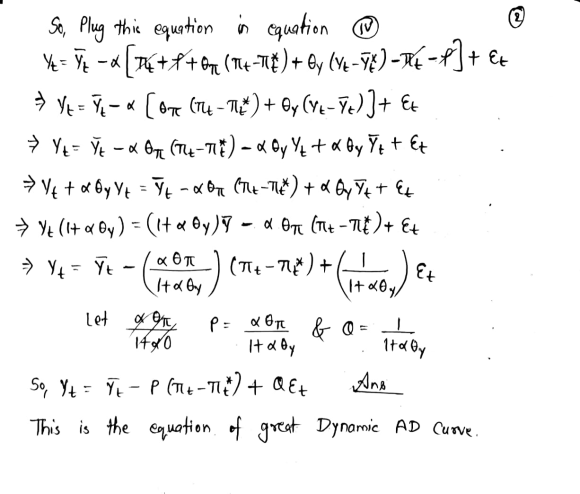 ②
So, Plug this equation in equation (IV)
Yₜ = Ȳₜ - α [π̶ₜ̶ + ρ̶ + θπ (πₜ - πₜ*) + θy (Yₜ - Ȳₜ*) - π̶ₜ̶ - ρ̶] + εₜ
⇒ Yₜ = Ȳₜ - α [θπ (πₜ - πₜ*) + θy (Yₜ - Ȳₜ)] + εₜ
⇒ Yₜ = Ȳₜ - α θπ (πₜ - πₜ*) - α θy Yₜ + α θy Ȳₜ + εₜ
⇒ Yₜ + α θy Yₜ = Ȳₜ - α θπ (πₜ - πₜ*) + α θy Ȳₜ + εₜ
⇒ Yₜ (1 + α θy) = (1 + α θy) Ȳ - α θπ (πₜ - πₜ*) + εₜ
⇒ Yₜ = Ȳₜ - (α θπ / 1 + α θy) (πₜ - πₜ*) + (1 / 1 + α θy) εₜ
Let α̶ θ̶π̶ / 1̶ + α̶ θ̶ P = α θπ / 1 + α θy & Q = 1 / 1 + α θy
So, Yₜ = Ȳₜ - P (πₜ - πₜ*) + Q εₜ Ans
This is the equation of great Dynamic AD Curve.